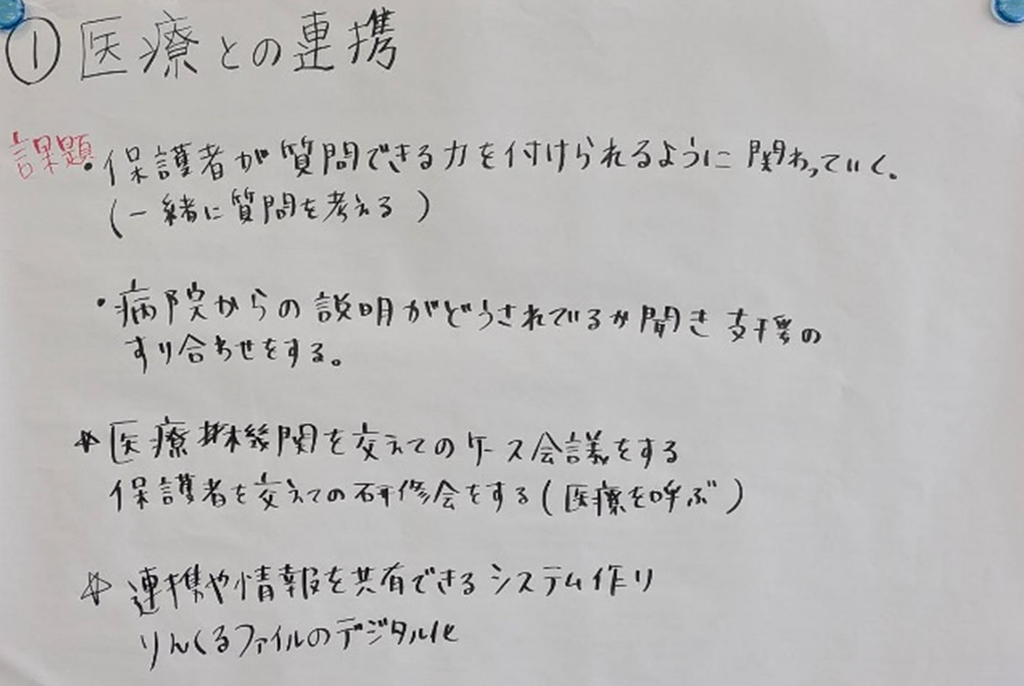 ① 医療との連携
課題・保護者が質問できる力を付けられるように関わっていく。
(一緒に質問を考える)
・病院からの説明がどうされているか聞き支援の
すり合わせをする。
☆医療機関を交えてのケース会議をする
保護者を交えての研修会をする(医療を呼ぶ)
☆連携や情報を共有できるシステム作り
りんくるファイルのデジタル化